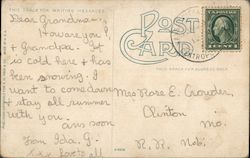 THIS SPACE FOR WRITING MESSAGES
Dear Grandma-,
How are you
& Grandpa. It
is cold here & has
been snowing. I
want to come down
& stay all summer
with you.
ans soon
From Ida. G.
Love to all
POST
CARD
THIS SPACE FOR ADDRESS ONLY
Mrs Rose E. Crowder,
Clinton
Mo.
R.R.